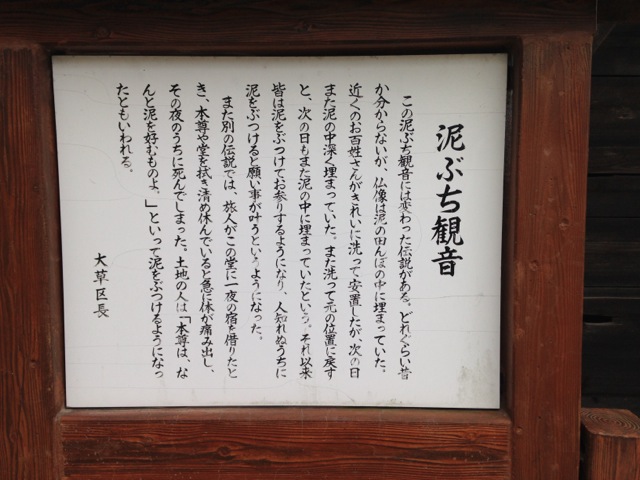 泥ぶち観音
この泥ぶち観音には変わった伝説がある。どれぐらい昔
か分からないが、仏像は泥の田んぼの中に埋まっていた。
近くのお百姓さんがきれいに洗って安置したが、次の日
また泥の中深く埋まっていた。また洗って元の位置に戻す
と、次の日もまた泥の中に埋まっていたという。それ以来
皆は泥をぶつけてお参りするようになり、人知れぬうちに
泥をぶつけると願い事が叶うというようになった。
また別の伝説では、旅人がこの堂に一夜の宿を借りたと
き、本尊や堂を拭き清め休んでいると急に体が痛み出し、
その夜のうちに死んでしまった。土地の人は「本尊は、な
んと泥を好むものよ、」といって泥をぶつけるようになっ
たともいわれる。
大草区長